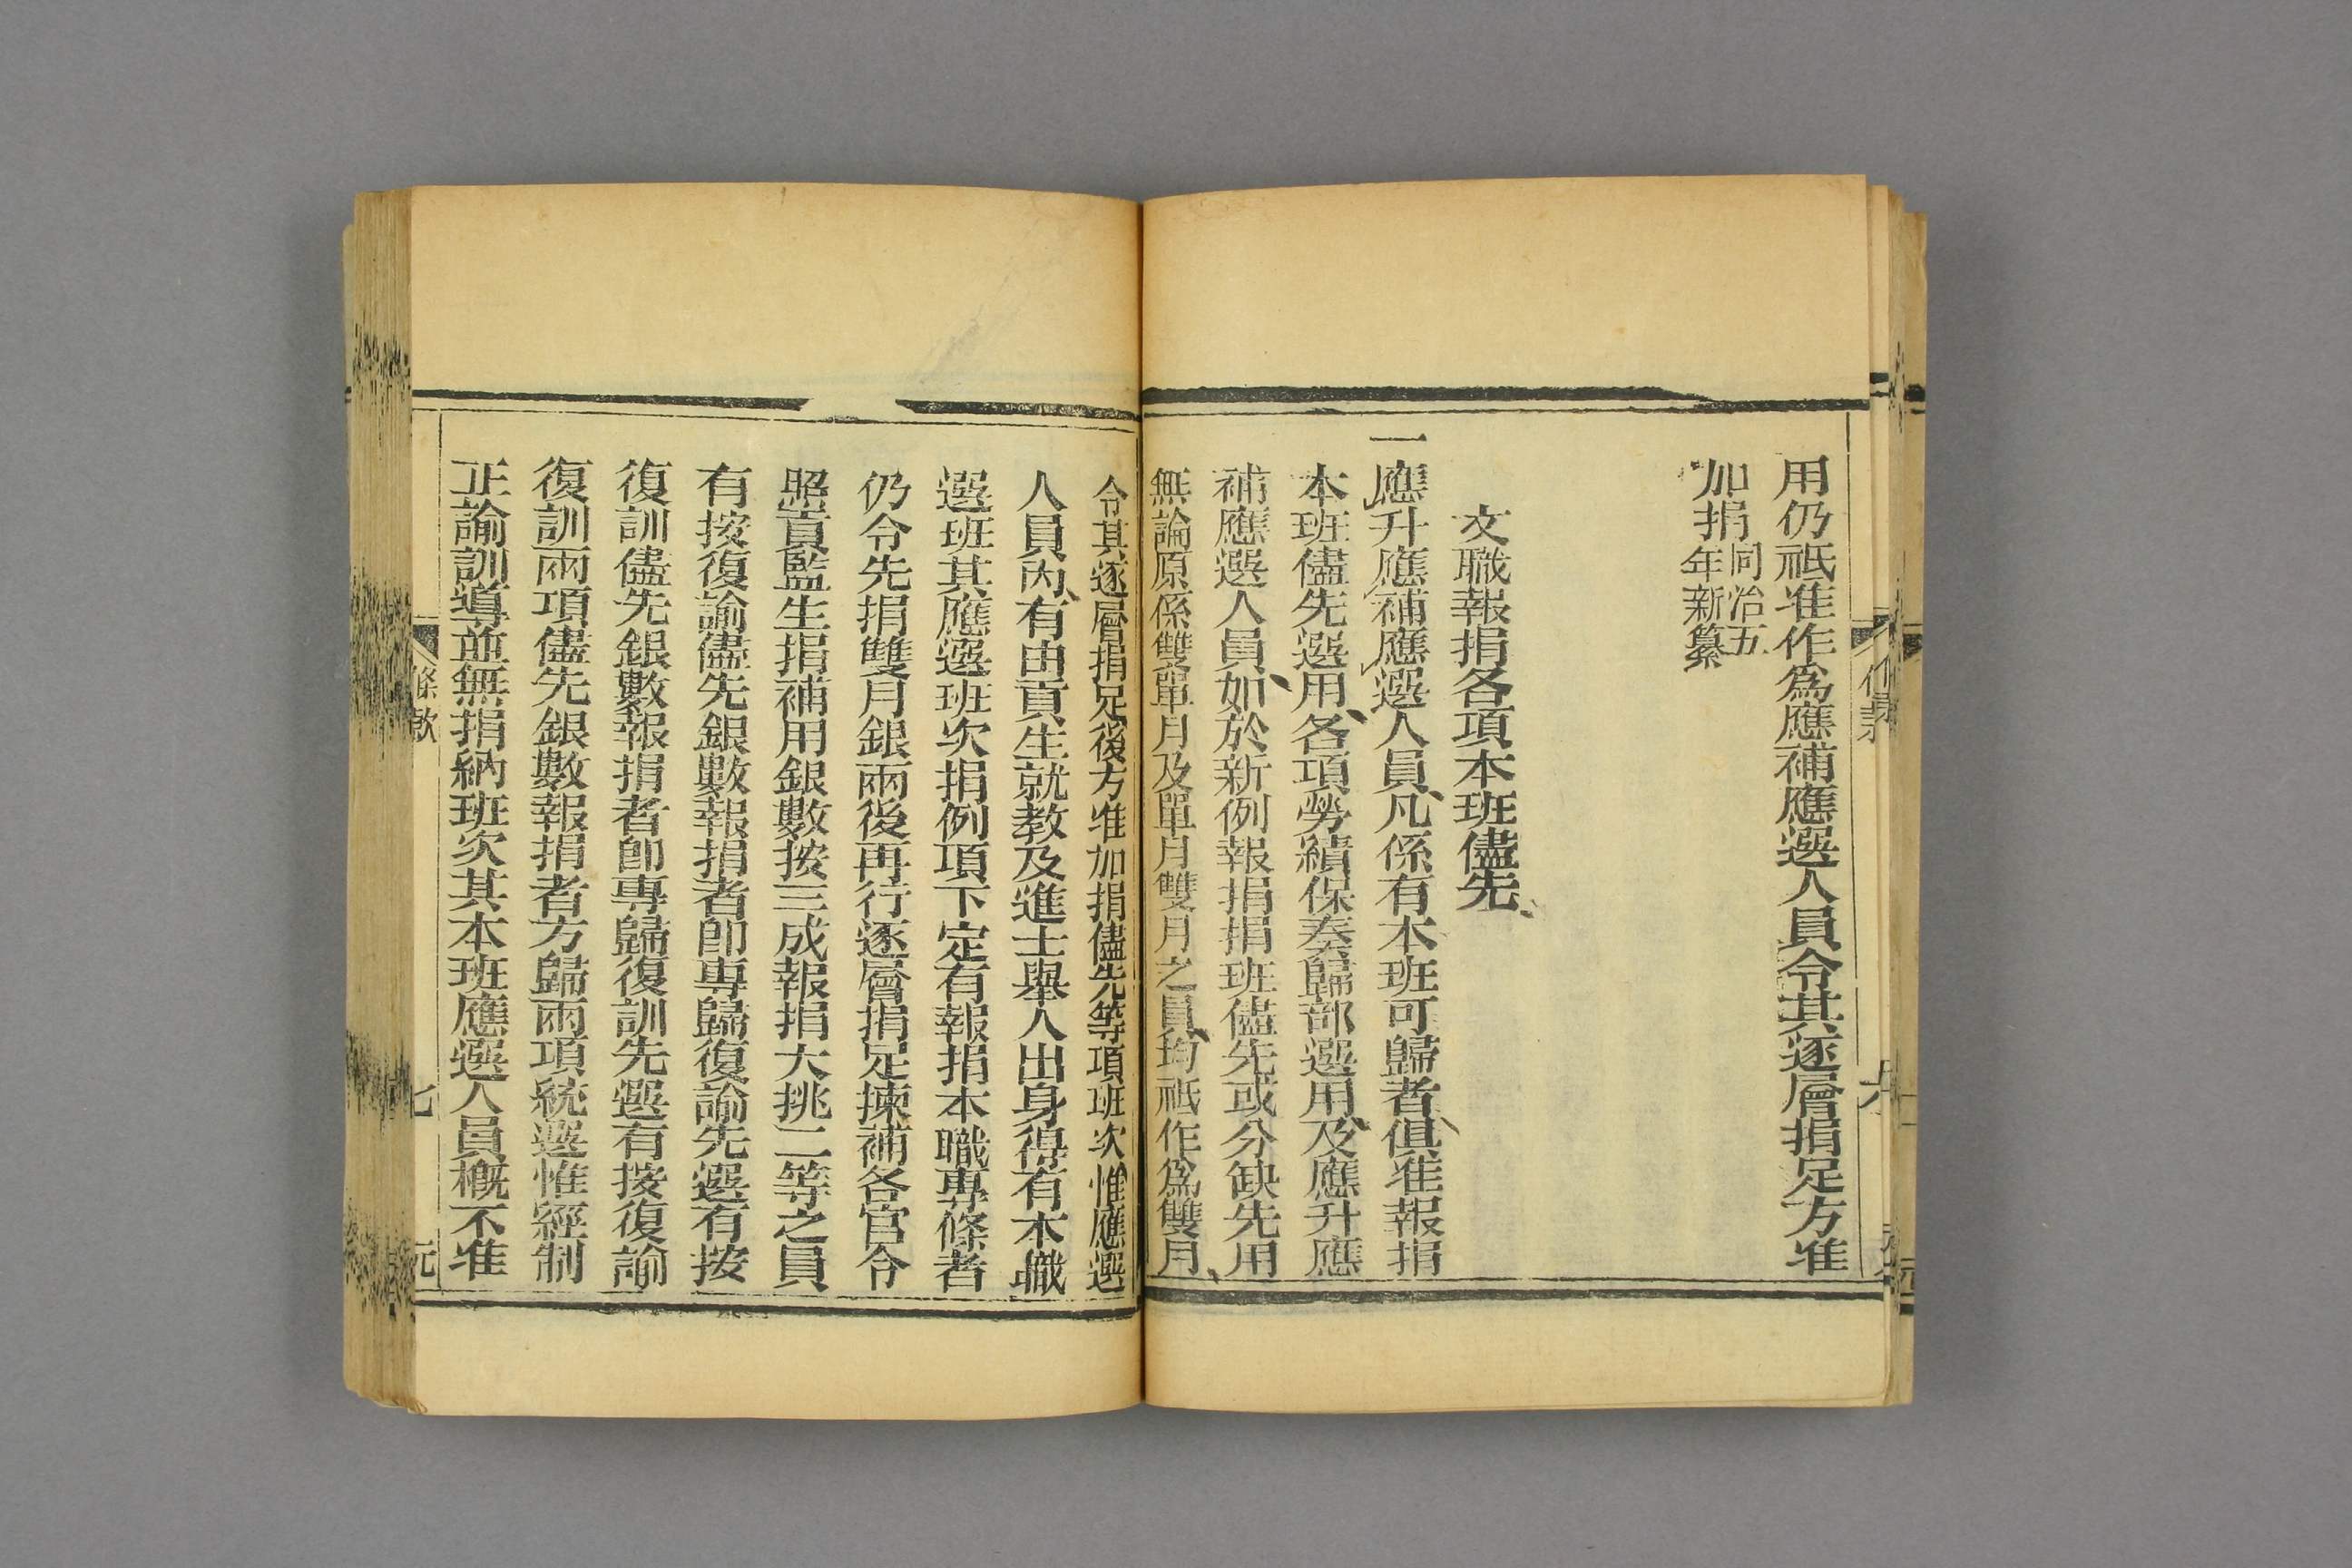 用仍祗准作爲應補應選人員令其逐層捐足方准
加捐同治五年新纂
文職報捐各項本班儘先
一應升應補應選人員凡係有本班可歸者俱准報捐
本班儘先選用各項勞績保奏歸部選用及應升應
補應選人員如於新例報捐捐班儘先或分缺先用
無論原係雙單月及單月雙月之員均祗作爲雙月
令其逐層捐足後方准加捐儘先等項班次惟應選
人員內有由貢生就教及進士舉人出身得有本職
選班其應選班次捐例項下定有報捐本職專條者
仍令先捐雙月銀兩後再行逐層捐足揀補各官令
照貢監生捐補用銀數按三成報捐大挑二等之員
有按復諭儘先銀數報捐者卽專歸復諭先選有按
復訓儘先銀數報捐者卽專歸復訓先選有按復諭
復訓兩項儘先銀數報捐者方歸兩項統選惟經制
正諭訓導並無捐納班次其本班應選人員概不准
條款
七
元